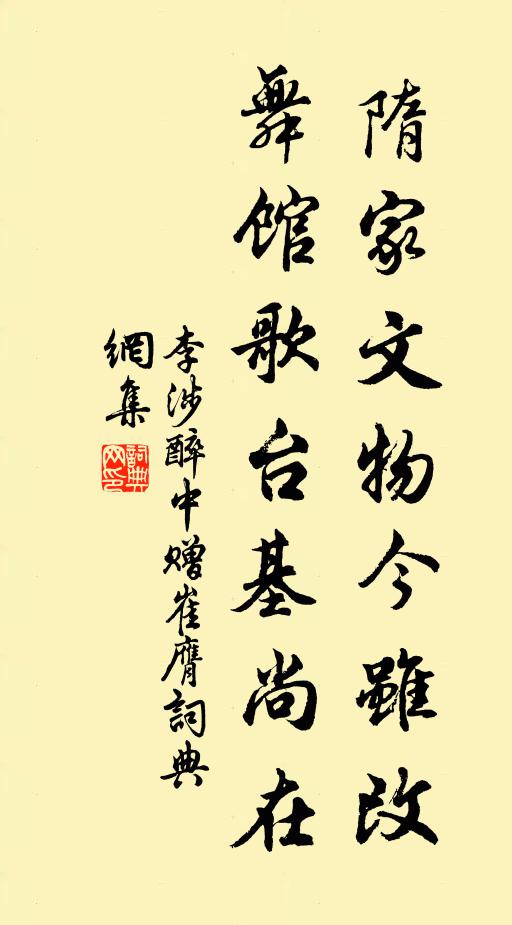 隋家文物今雖改
舞馆歌台基尚在
李涉醉中赠崔膺詞典
網集
詞典
网印